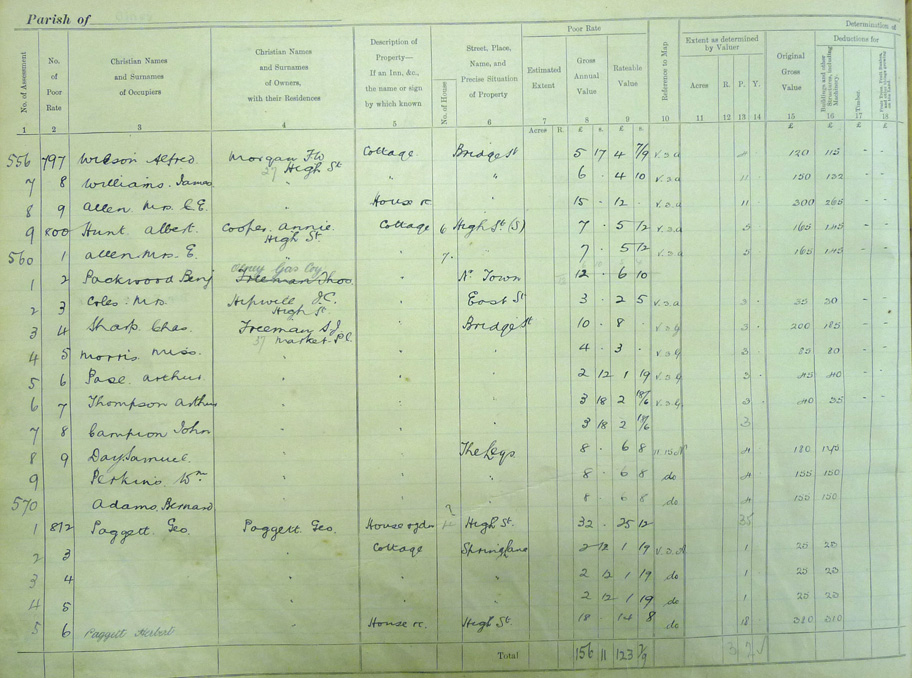 Parish of
Poor Rate
Determination of
No. of Assessment
No. of Poor Rate
Christian Names and Surnames of Occupiers
Christian Names and Surnames of Owners, with their Residences
Description of Property— If an Inn, &c., the name or sign by which known
No. of House
Street, Place, Name, and Precise Situation of Property
Estimated Extent
Gross Annual Value
Rateable Value
Reference to Map
Extent as determined by Valuer
Acres R. P. Y.
Original Gross Value
Deductions for
Buildings and other Structures, including Machinery.
Timber.
1 2 3 4 5 6 7 8 9 10 11 12 13 14 15 16 17 18
Acres R. £ s. £ s. £ £ £ £
556 797 Wilson Alfred Morgan F W Cottage Bridge St 5 17 4 7/9 V.S.a 120 115 - -
37 High St
7 8 Williams. James " " 6 . 4 10 V.S.a 11 150 132 - -
8 9 Allen Mrs C.E. " House &c " 15 . 12 . V.S.a 11 300 265 - -
9 800 Hunt Albert. Cooper. Annie Cottage 6 High St (S) 7 . 5 12 V.S.a 5 165 145 - -
High St.
560 1 Allen Mrs E. " " 7. " 7 . 5 12 V.S.a 5 165 145 - -
Gas Coy
1 2 Packwood Benj Freeman Thos " Nr Town 12 . 6 10
2 3 Coles. Mrs. Hipwell J.C. " East St 3 . 2 5 V.S.a 3 35 30 - -
High St
3 4 Sharp Chas. Freeman S J " Bridge St 10 . 8 . V.S.G 3 200 185 - -
37 Market Pl.
4 5 Morris Miss. " " " 4 . 3 . V.S.G 3 85 80 - -
5 6 Pase Arthur. " " " 2 12 1 19 V.S.G 3 45 40 - -
6 7 Thompson Arthur " " " 3 18 2 18/6 V.S.G 3 40 35 - -
7 8 Campion John " " " 3 18 2 18/6 3
8 9 Day Samuel. " " The Leys 8 . 6 8 4 180 145
9 Perkins Wm " " " 8 . 6 8 do 4 155 150
570 Adams, Bernard 8 . 6 8 do 4 155 150
1 812 Paggett. Geo. Paggett. Geo. House & gdn High St. 32 . 25 12 35
2 3 " Cottage Spring Lane 2 12 1 19 1 25 20
3 4 " " " 2 12 1 19 do 1 25 20
4 5 " " " 2 12 1 19 do 1 25 20
5 6 Paggett Herbert " House &c. High St. 18 . 14 8 do 18 310
Total 156 11 123 7/9